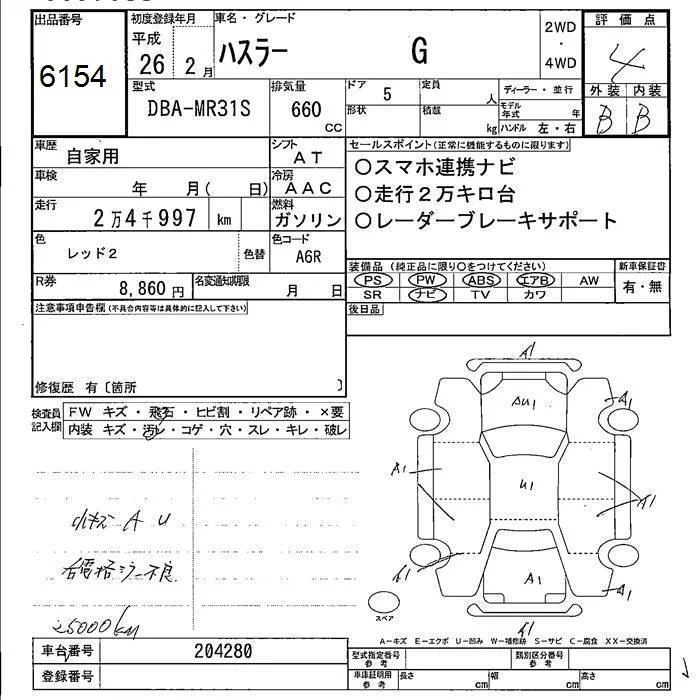 出品番号 初度登録年月 車名・グレード 2WD・4WD 評価点
6154 平成 26 2月 ハスラー G 4
型式 排気量 ドア 5 定員 人 ディーラー・並行 外装 内装
DBA-MR31S 660 CC 形状 積載 kg モデル年式 年 ハンドル 左・右 B B
車歴 自家用 シフト AT セールスポイント(正常に機能するものに限ります)
車検 年 月( 日) 冷房 AAC ○スマホ連携ナビ
走行 2万4千997 km 燃料 ガソリン ○走行2万キロ台
○レーダーブレーキサポート
色 レッド2 色替 色コード A6R
R券 8,860円 名変通知期限 月 日 装備品(純正品に限り○をつけてください) 新車保証書
PS PW ABS エアB AW 有・無
SR ナビ TV カワ
注意事項申告欄(不具合内容等は具体的に記入して下さい) 後日品
修復歴 有〔箇所 〕
検査員記入欄 FW キズ・飛石・ヒビ割・リペア跡・×要
内装 キズ・汚レ・コゲ・穴・スレ・キレ・破レ
A1
AU1 A1
A1 U1 A1
小キズ A U
A1 A1 A1
25000km
スペア
A1
A-キズ E-エクボ U-凹み W-補修跡 S-サビ C-腐食 XX-交換済
車台番号 204280 型式指定番号 参考 類別区分番号 参考
登録番号 車庫証明用 参考 長さ cm 幅 cm 高さ cm